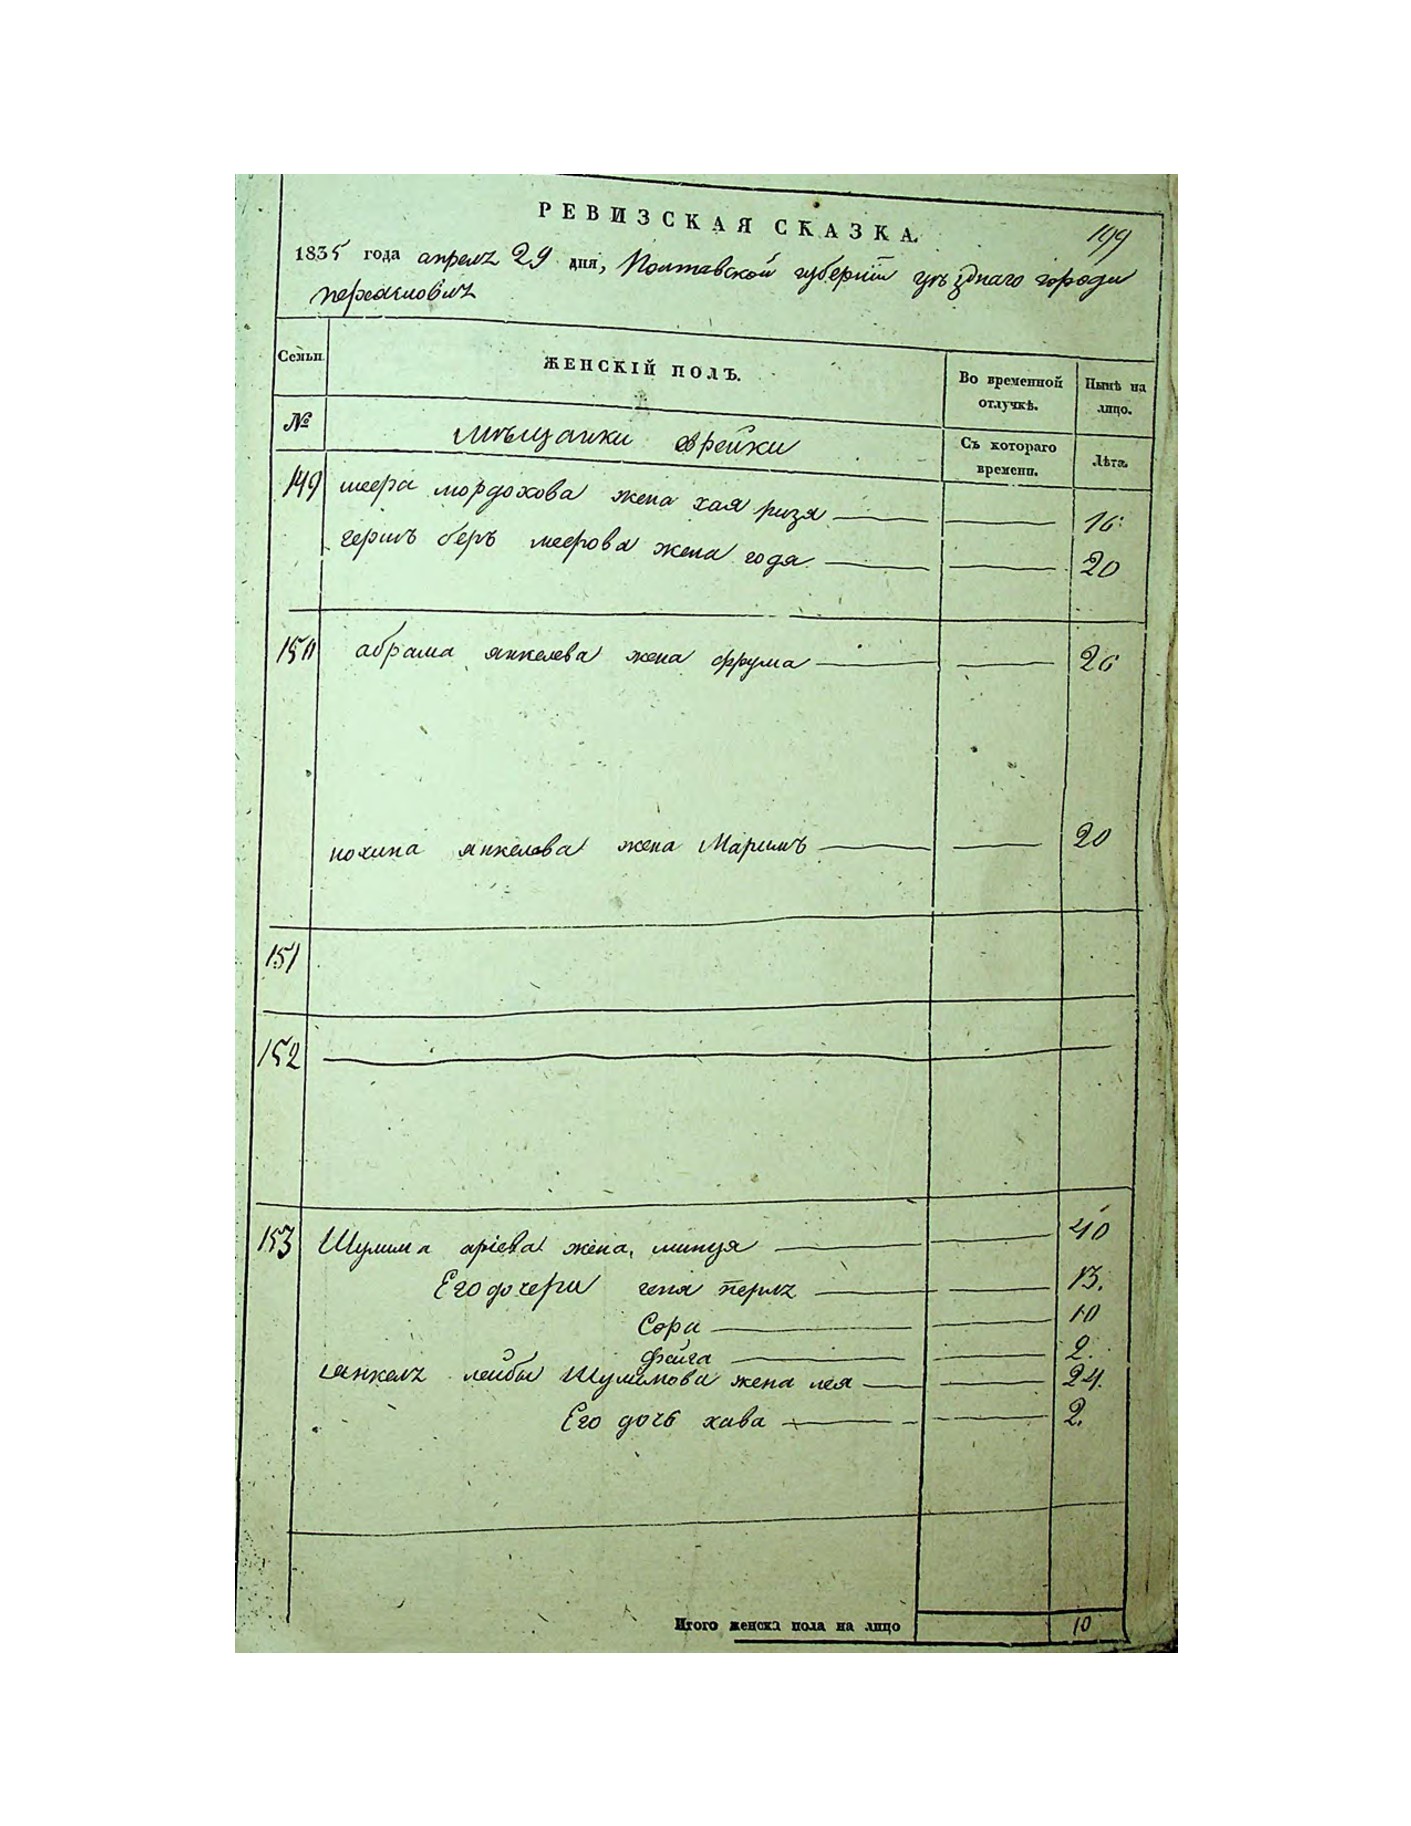 РЕВИЗСКАЯ СКАЗКА
199
1835 года апреля 29 дня, Полтавской губернии уѣзднаго города
переяслова
Семьи
ЖЕНСКІЙ ПОЛЪ.
Во временной отлучкѣ.
Нынѣ на лицо.
№
мѣщанки еврейки
Съ котораго времени.
Лѣта.
149 меера мордохова жена хая ризя 16
гершъ беръ меерова жена годя 20
150 абрама янкелева жена фрума 26
нохима янкелева жена Маримъ 20
151
152
153 Шулима аріева жена минця 40
Его дочери геня перля 13.
Сора 10
фейга 2.
янкеля лейбы Шулимова жена лея 24.
Его дочь хава 2.
Итого женска пола на лицо 10